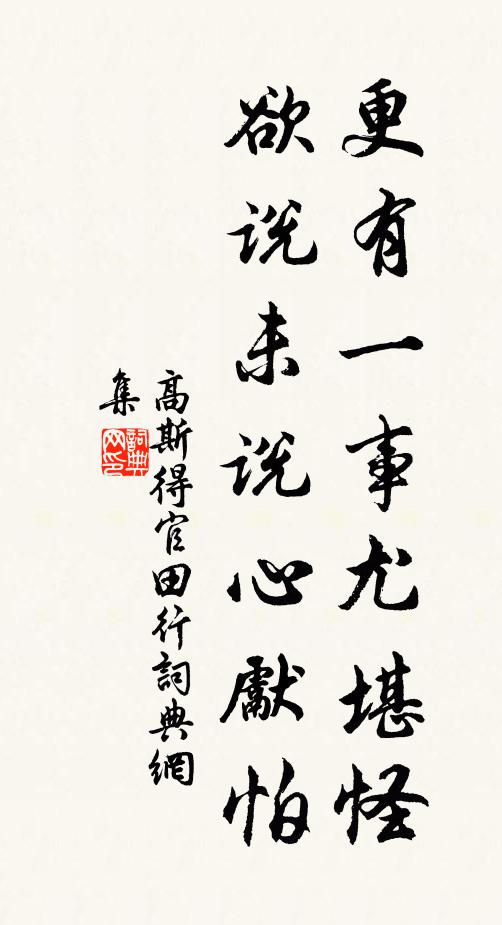 更有一事尤堪怪
欲说未说心献怕
高斯得官田行詞典網
集
詞典
网印